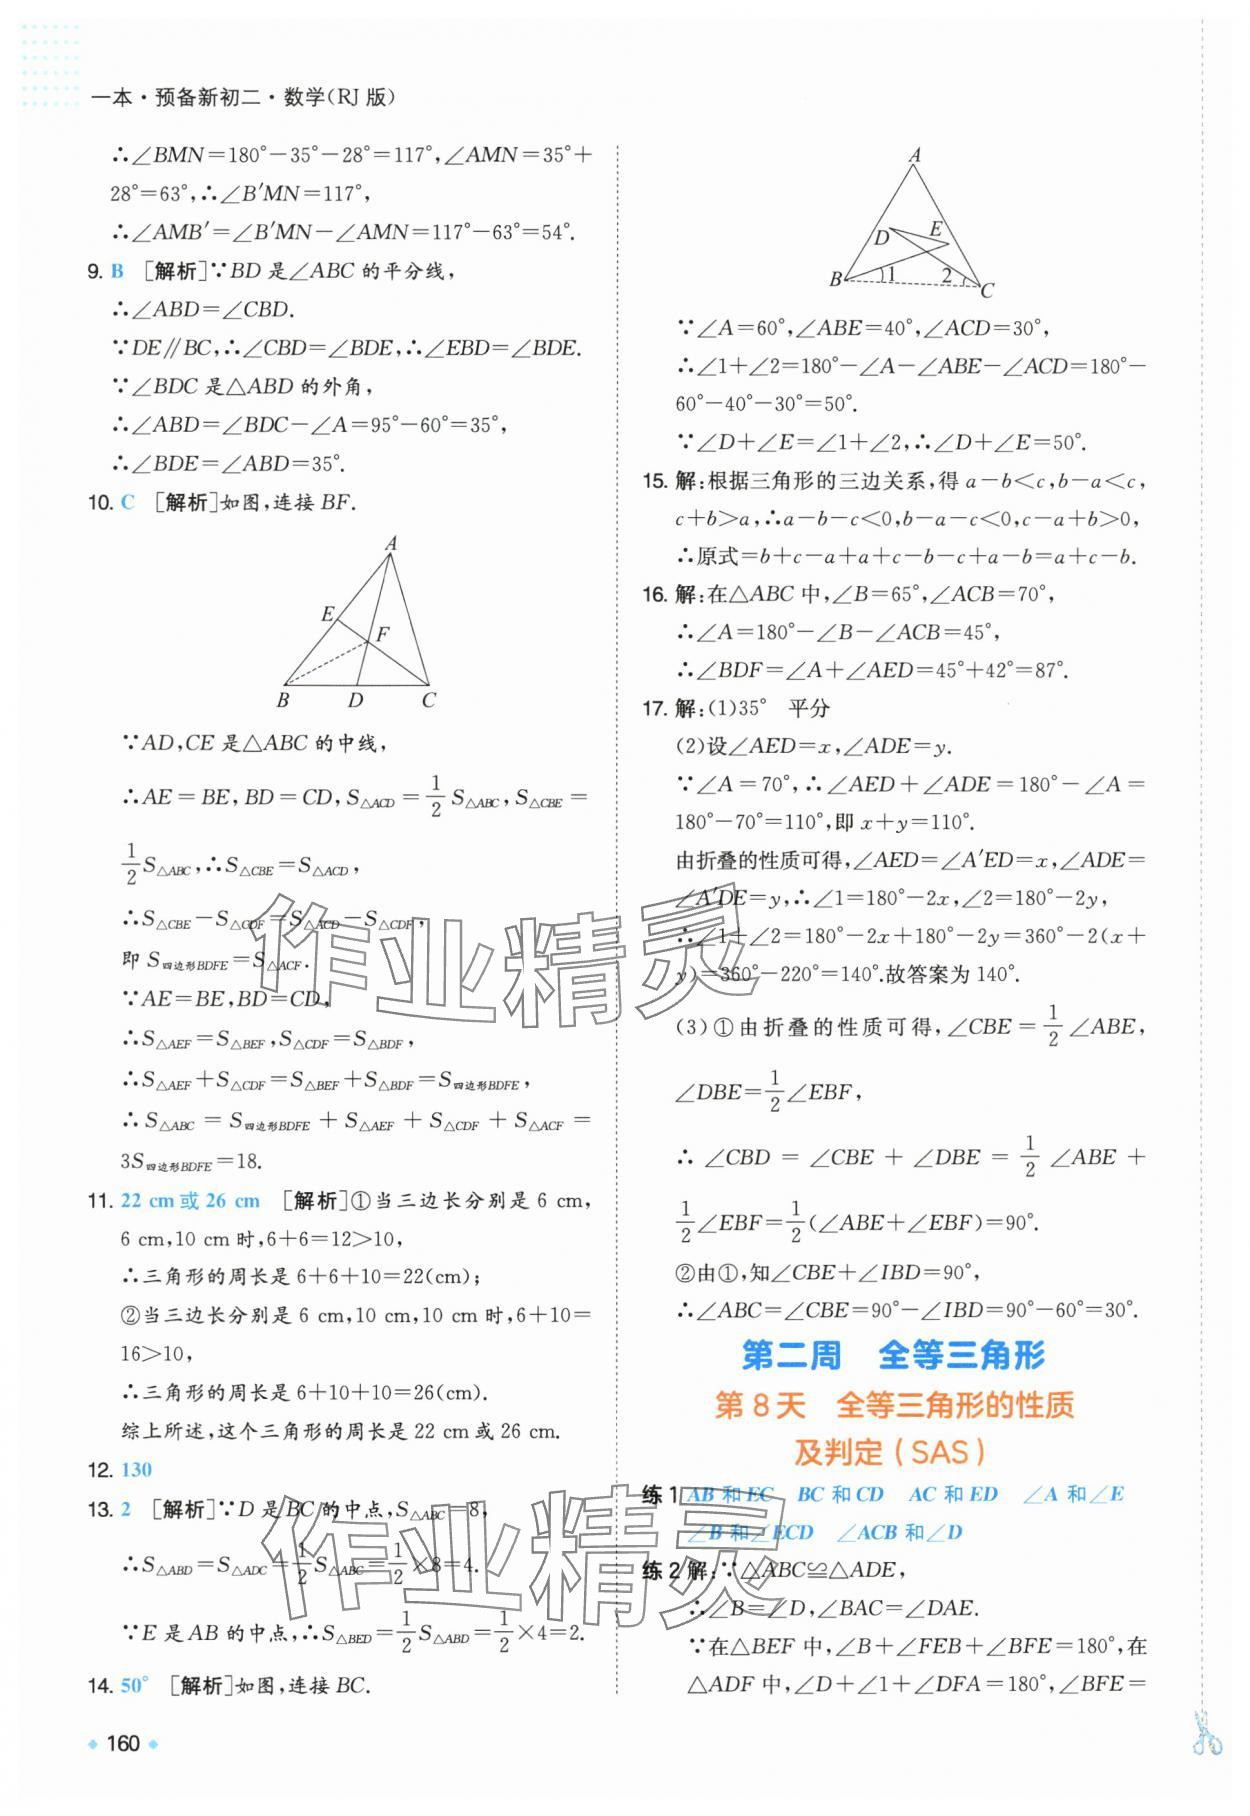 一本·预备新初二·数学(RJ版)
∴∠BMN=180°-35°-28°=117°,∠AMN=35°+
28°=63°,∴∠B′MN=117°,
∴∠AMB′=∠B′MN-∠AMN=117°-63°=54°.
9. B [解析]∵BD是∠ABC的平分线,
∴∠ABD=∠CBD.
∵DE∥BC,∴∠CBD=∠BDE,∴∠EBD=∠BDE.
∵∠BDC是△ABD的外角,
∴∠ABD=∠BDC-∠A=95°-60°=35°,
∴∠BDE=∠ABD=35°.
10. C [解析]如图,连接BF.
A
E
F
B D C
∵AD,CE是△ABC的中线,
∴AE=BE,BD=CD,S△ACD=1/2 S△ABC,S△CBE=
1/2 S△ABC,∴S△CBE=S△ACD,
∴S△CBE-S△CDF=S△ACD-S△CDF,
即S四边形BDFE=S△ACF.
∵AE=BE,BD=CD,
∴S△AEF=S△BEF,S△CDF=S△BDF,
∴S△AEF+S△CDF=S△BEF+S△BDF=S四边形BDFE,
∴S△ABC=S四边形BDFE+S△AEF+S△CDF+S△ACF=
3S四边形BDFE=18.
11. 22 cm或26 cm [解析]①当三边长分别是6 cm,
6 cm,10 cm时,6+6=12>10,
∴三角形的周长是6+6+10=22(cm);
②当三边长分别是6 cm,10 cm,10 cm时,6+10=
16>10,
∴三角形的周长是6+10+10=26(cm).
综上所述,这个三角形的周长是22 cm或26 cm.
12. 130
13. 2 [解析]∵D是BC的中点,S△ABC=8,
∴S△ABD=S△ADC=1/2 S△ABC=1/2×8=4.
∵E是AB的中点,∴S△BED=1/2 S△ABD=1/2×4=2.
14. 50° [解析]如图,连接BC.
A
D E
B 1 2 C
∵∠A=60°,∠ABE=40°,∠ACD=30°,
∴∠1+∠2=180°-∠A-∠ABE-∠ACD=180°-
60°-40°-30°=50°.
∵∠D+∠E=∠1+∠2,∴∠D+∠E=50°.
15. 解:根据三角形的三边关系,得a-b<c,b-a<c,
c+b>a,∴a-b-c<0,b-a-c<0,c-a+b>0,
∴原式=b+c-a+a+c-b-c+a-b=a+c-b.
16. 解:在△ABC中,∠B=65°,∠ACB=70°,
∴∠A=180°-∠B-∠ACB=45°,
∴∠BDF=∠A+∠AED=45°+42°=87°.
17. 解:(1)35° 平分
(2)设∠AED=x,∠ADE=y.
∵∠A=70°,∴∠AED+∠ADE=180°-∠A=
180°-70°=110°,即x+y=110°.
由折叠的性质可得,∠AED=∠A′ED=x,∠ADE=
∠A′DE=y,∴∠1=180°-2x,∠2=180°-2y,
∴∠1+∠2=180°-2x+180°-2y=360°-2(x+
y)=360°-220°=140°.故答案为140°.
(3)①由折叠的性质可得,∠CBE=1/2∠ABE,
∠DBE=1/2∠EBF,
∴∠CBD=∠CBE+∠DBE=1/2∠ABE+
1/2∠EBF=1/2(∠ABE+∠EBF)=90°.
②由①,知∠CBE+∠IBD=90°,
∴∠ABC=∠CBE=90°-∠IBD=90°-60°=30°.
第二周 全等三角形
第8天 全等三角形的性质
及判定(SAS)
练1 AB和EC BC和CD AC和ED ∠A和∠E
∠B和∠ECD ∠ACB和∠D
练2 解:∵△ABC≌△ADE,
∴∠B=∠D,∠BAC=∠DAE.
∵在△BEF中,∠B+∠FEB+∠BFE=180°,在
△ADF中,∠D+∠1+∠DFA=180°,∠BFE=
160
作业精灵
作业精灵